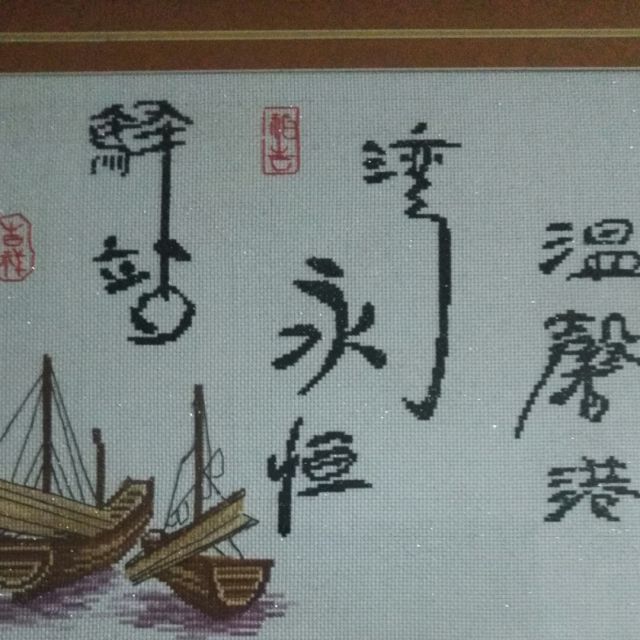 温馨港
湾
永恒
驿站
吉祥